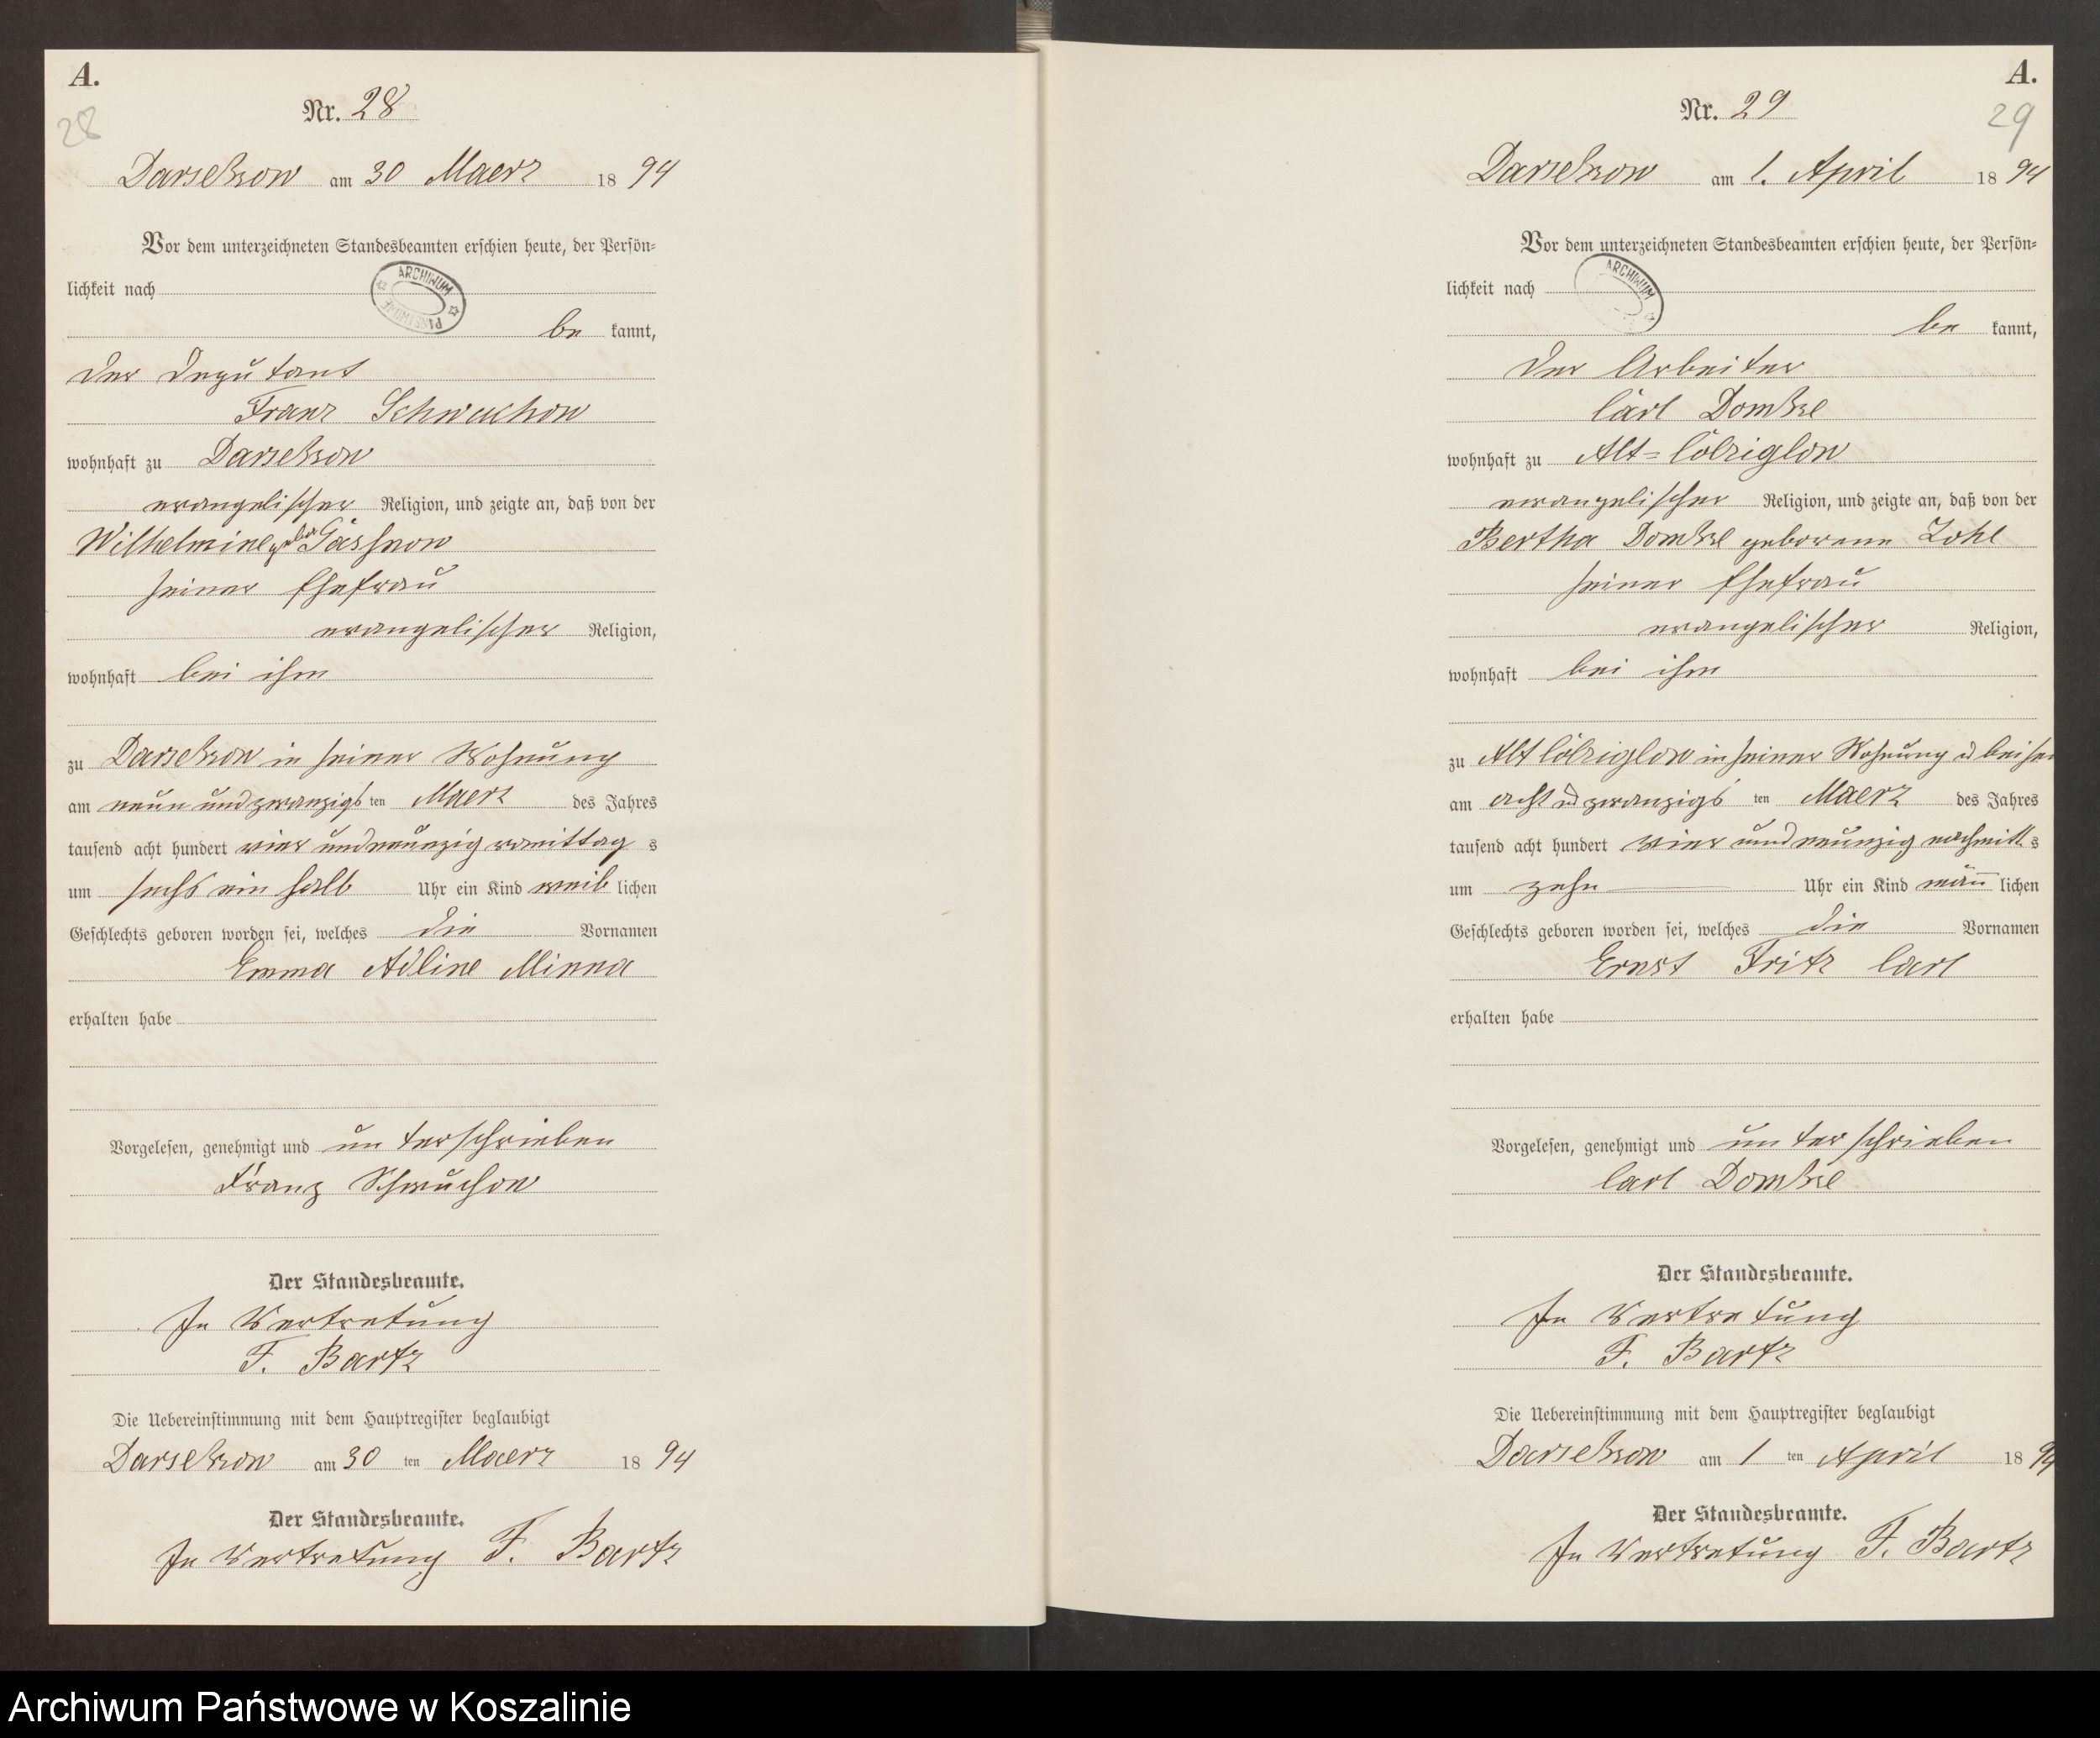 A.
28
Nr. 28
Darsekow am 30 Maerz 1894
Vor dem unterzeichneten Standesbeamten erschien heute, der Persön-
lichkeit nach
ARCHIWUM
PAŃSTWOWE
be kannt,
der Deputant
Franz Schwuchow
wohnhaft zu Darsekow
evangelischer Religion, und zeigte an, daß von der
Wilhelmine geb. Gässnow
seiner Ehefrau
evangelischer Religion,
wohnhaft bei ihm
zu Darsekow in seiner Wohnung
am neun und zwanzigs ten Maerz des Jahres
tausend acht hundert vier und neunzig vormittag s
um sechs ein halb Uhr ein Kind weib lichen
Geschlechts geboren worden sei, welches die Vornamen
Emma Adline Minna
erhalten habe
Vorgelesen, genehmigt und unterschrieben
Franz Schwuchow
Der Standesbeamte.
In Vertretung
F. Bartz
Die Uebereinstimmung mit dem Hauptregister beglaubigt
Darsekow am 30 ten Maerz 1894
Der Standesbeamte.
In Vertretung F. Bartz
A.
29
Nr. 29
Darsekow am 1. April 1894
Vor dem unterzeichneten Standesbeamten erschien heute, der Persön-
lichkeit nach
ARCHIWUM
be kannt,
der Arbeiter
Carl Domke
wohnhaft zu Alt=Colziglow
evangelischer Religion, und zeigte an, daß von der
Bertha Domke geborene Zohl
seiner Ehefrau
evangelischer Religion,
wohnhaft bei ihm
zu Alt Colziglow in seiner Wohnung u bei sei
am acht u zwanzigs ten Maerz des Jahres
tausend acht hundert vier und neunzig nachmitt s
um zehn Uhr ein Kind männ lichen
Geschlechts geboren worden sei, welches die Vornamen
Ernst Fritz Carl
erhalten habe
Vorgelesen, genehmigt und unterschrieben
Carl Domke
Der Standesbeamte.
In Vertretung
F. Bartz
Die Uebereinstimmung mit dem Hauptregister beglaubigt
Darsekow am 1 ten April 1894
Der Standesbeamte.
In Vertretung F. Bartz
Archiwum Państwowe w Koszalinie